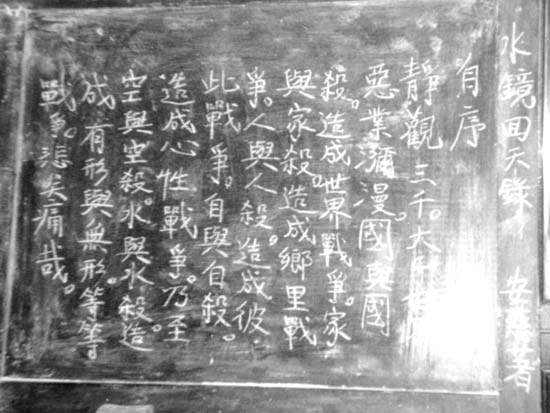 水鏡回天錄 安慈著
自序
靜觀三千。大千
惡業瀰漫。國與國
殺。造成世界戰爭。家
與家殺。造成鄉里戰
爭。人與人殺。造成彼
此戰爭。自與自殺。
造成心性戰爭。乃至
空與空殺。水與水殺造
成有形與無形等等
戰爭。悲矣痛哉。